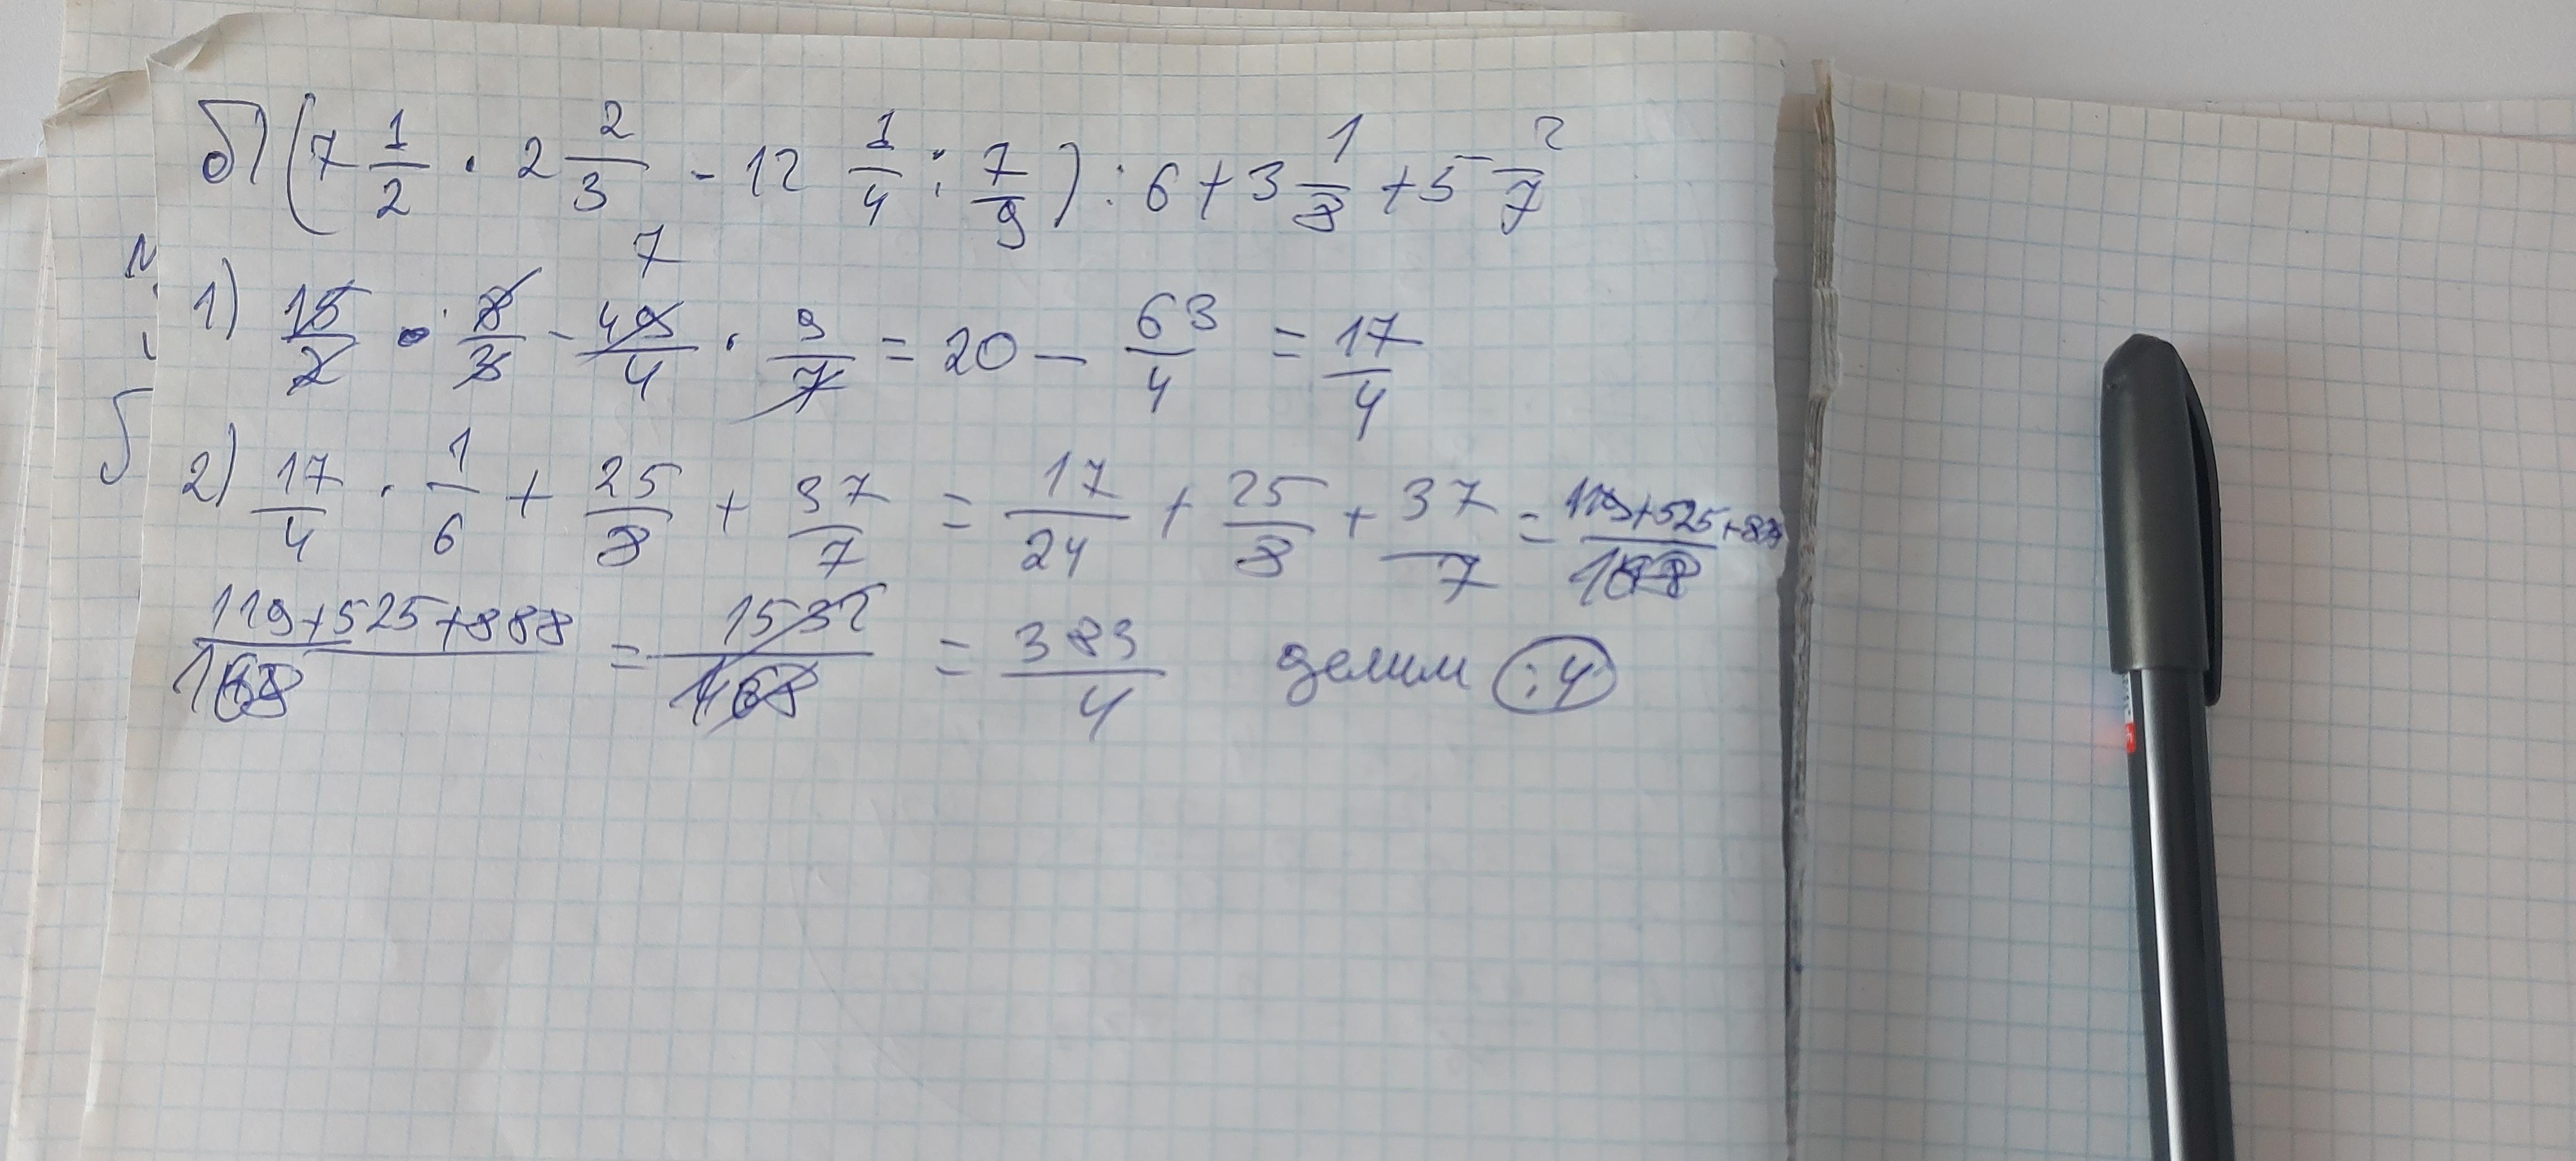 б) (7 1/2 · 2 2/3 - 12 1/4 : 7/9) : 6 + 3 1/8 + 5 2/7
7
1) 15/2 · 8/3 - 49/4 · 9/7 = 20 - 63/4 = 17/4
2) 17/4 · 1/6 + 25/8 + 37/7 = 17/24 + 25/8 + 37/7 = 119+525+888/168
119+525+888/168 = 1532/168 = 383/4 делим :4